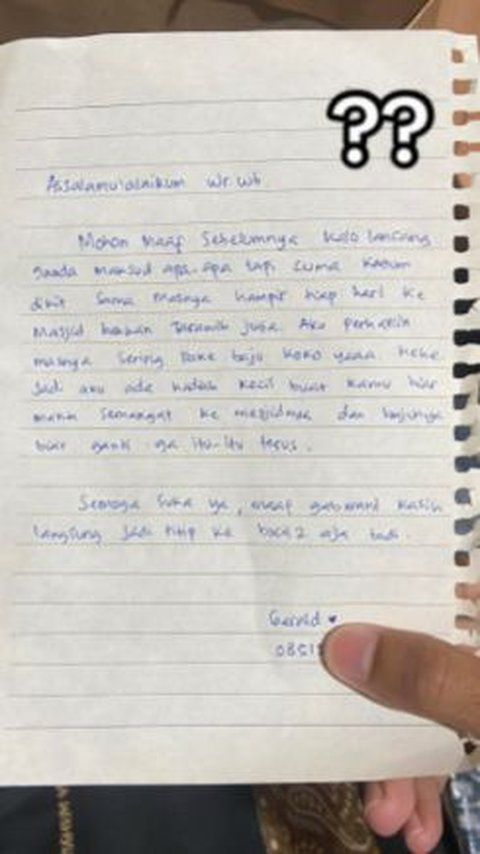 ??
Assalamu'alaikum Wr Wb.
Mohon Maaf Sebelumnya kalo lancang
gaada maksud apa-apa tapi cuma kagum
dikit sama masnya hampir tiap hari ke
Masjid bahkan Tarawih juga. Aku perhatiin
masnya sering pake baju koko yaaa hehe
Jadi aku ada hadiah kecil buat kamu biar
makin semangat ke mesjidnya dan bajunya
biar ganti ga itu-itu terus.
Semoga suka ya, maaf gaberani kasih
langsung jadi titip ke bocil2 aja tadi.
Gerald ♥
08515